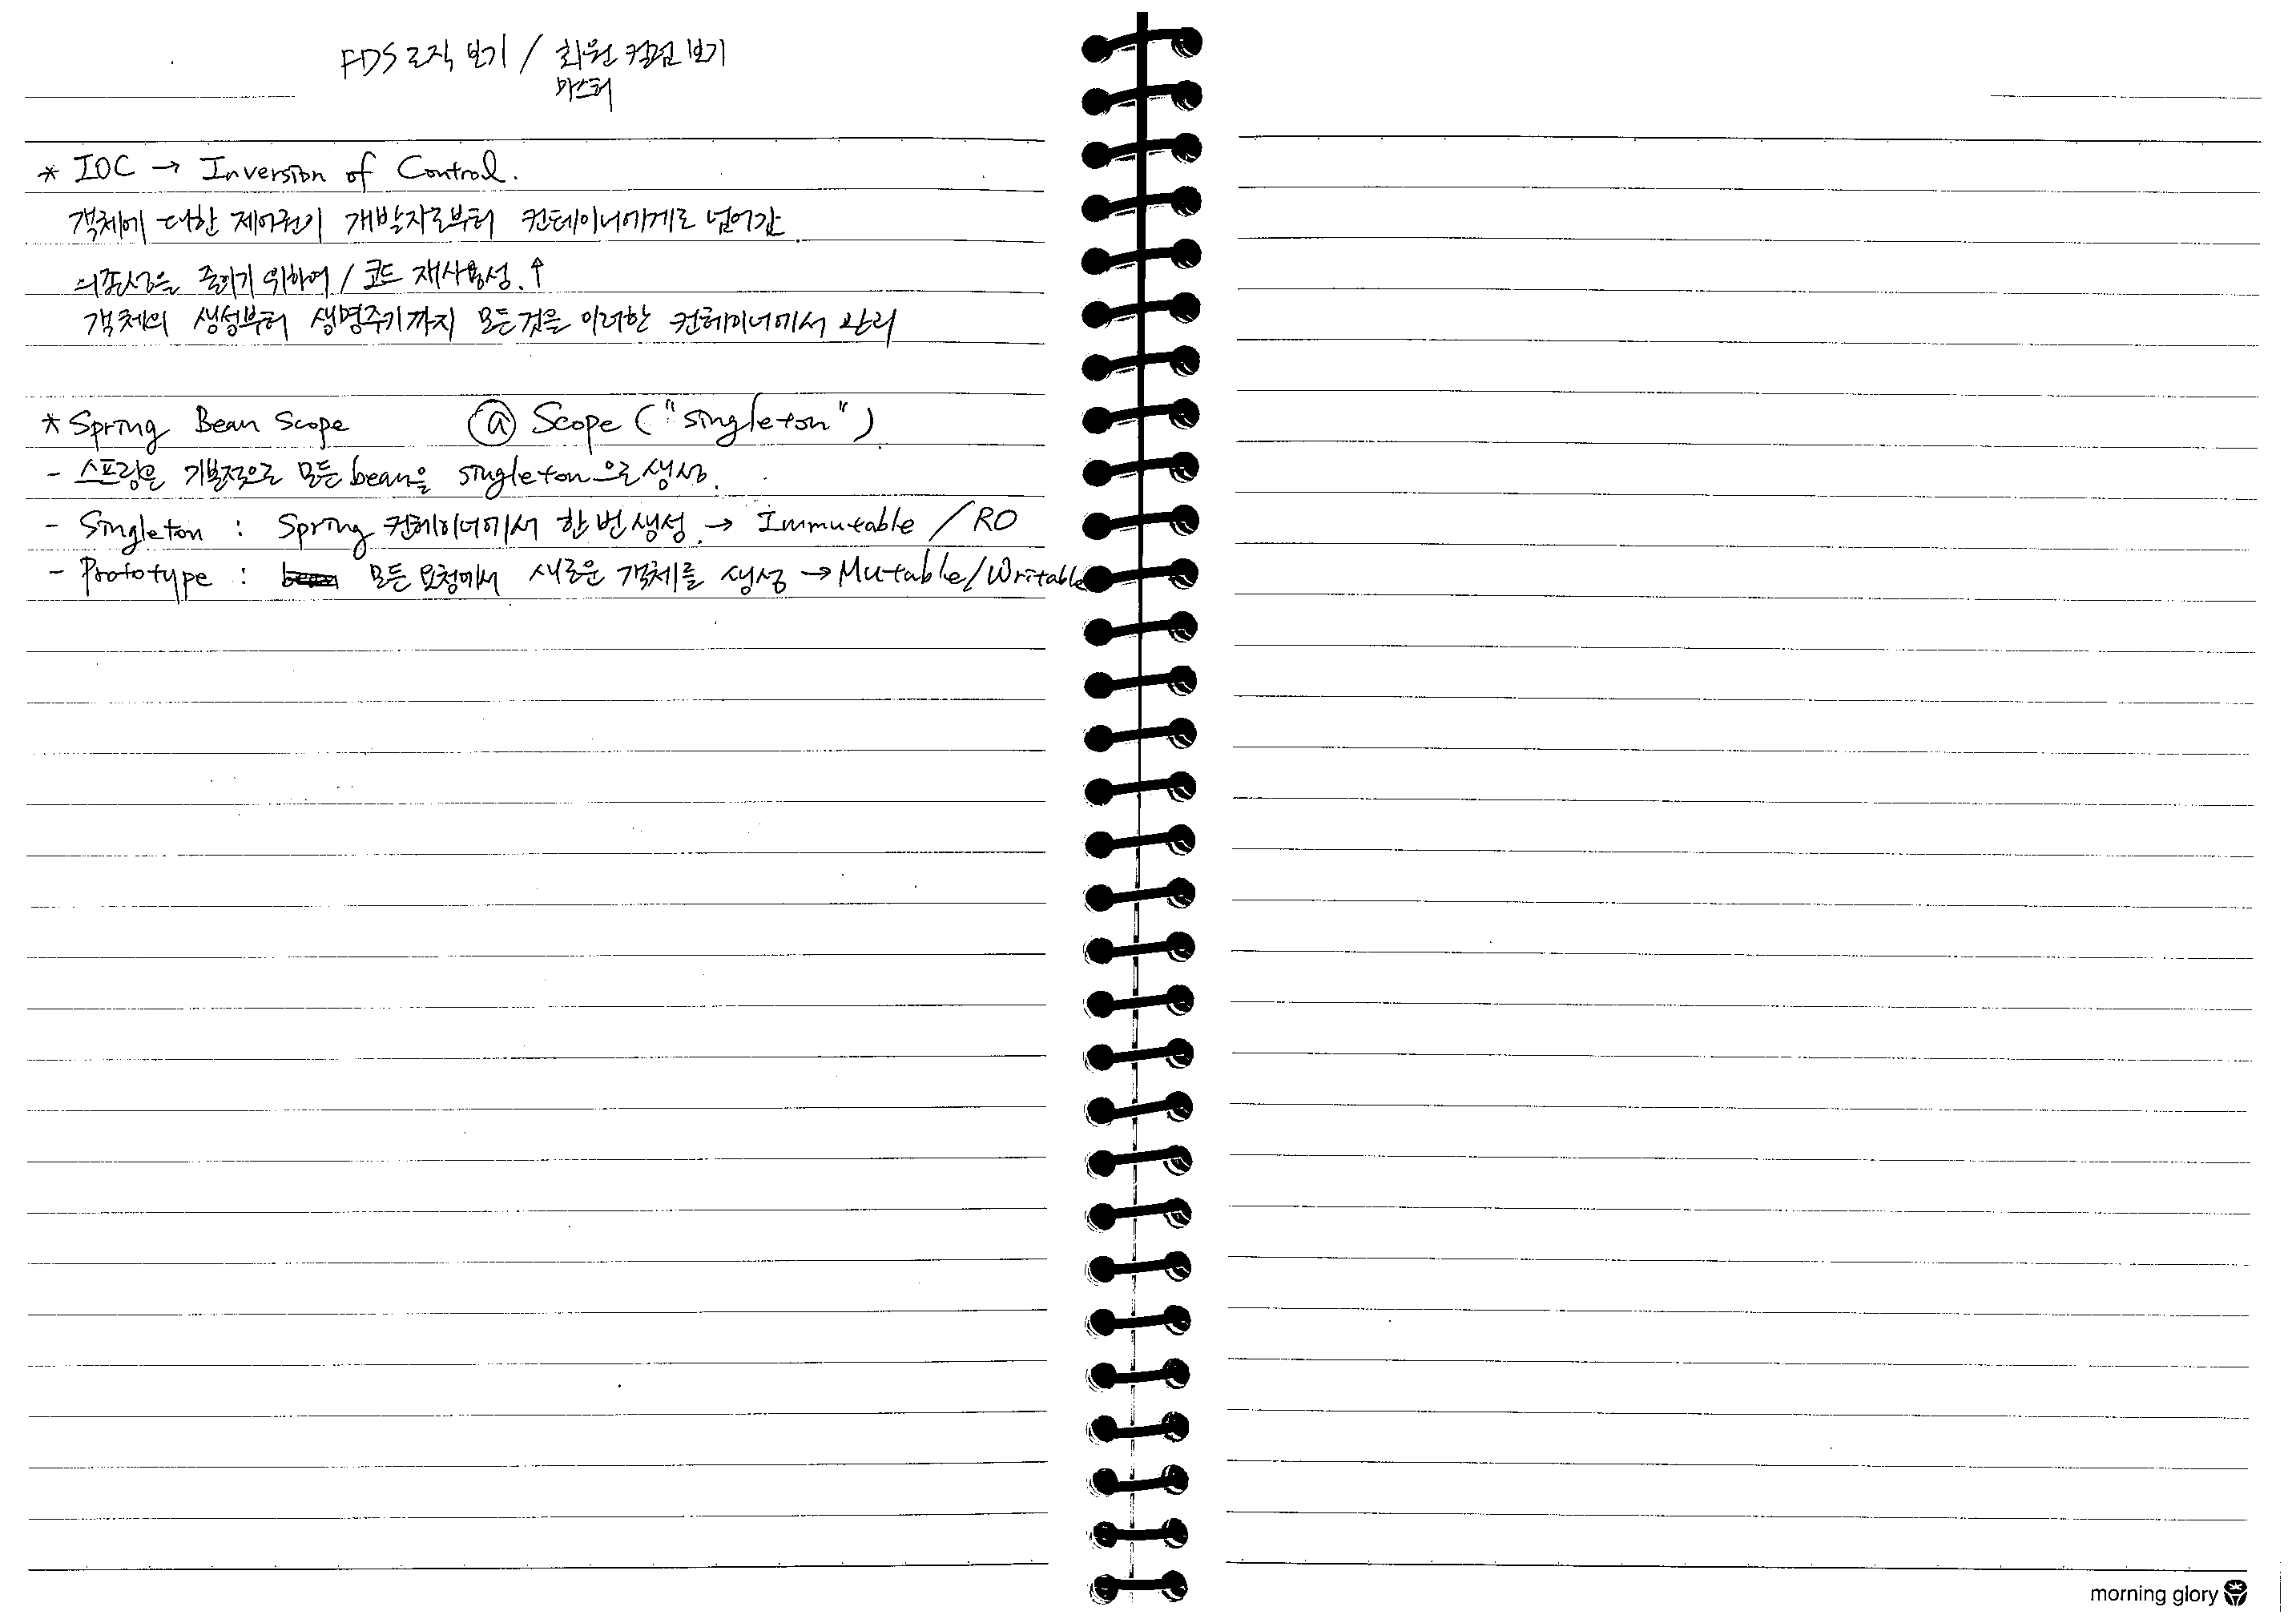 FDS 로직 보기 / 회원 컬럼 보기
마스터
* IOC → Inversion of Control.
객체에 대한 제어권이 개발자로부터 컨테이너에게로 넘어감.
의존성을 줄이기 위하여 / 코드 재사용성.↑
객체의 생성부터 생명주기까지 모든것을 이러한 컨테이너에서 관리
* Spring Bean Scope @ Scope ("singleton")
- 스프링은 기본적으로 모든 bean을 singleton으로 생성.
- Singleton : Spring 컨테이너에서 한 번 생성. → Immutable / RO
- Prototype : 모든 요청에서 새로운 객체를 생성 → Mutable/Writable
morning glory